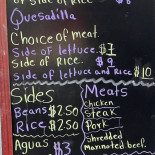 Quesadilla
Choice of meat.
Side of lettuce. $7
Side of Rice. $9
Side of lettuce and Rice. $10
Sides
Beans $2.50
Rice $2.50
Aguas $3
Meats
chicken
steak
Pork
Shredded
Marinated beef.